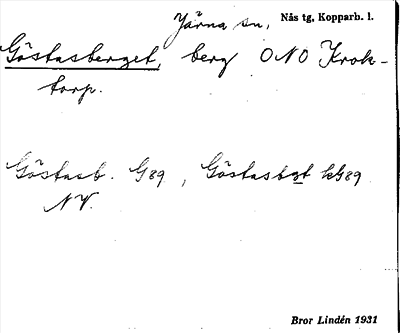 Järna sn, Nås tg, Kopparb. l.
Göstasberget, berg ONO Krok-
torp.
Göstasb. G89, Göstasbgt kG89
NV.
Bror Lindén 1931